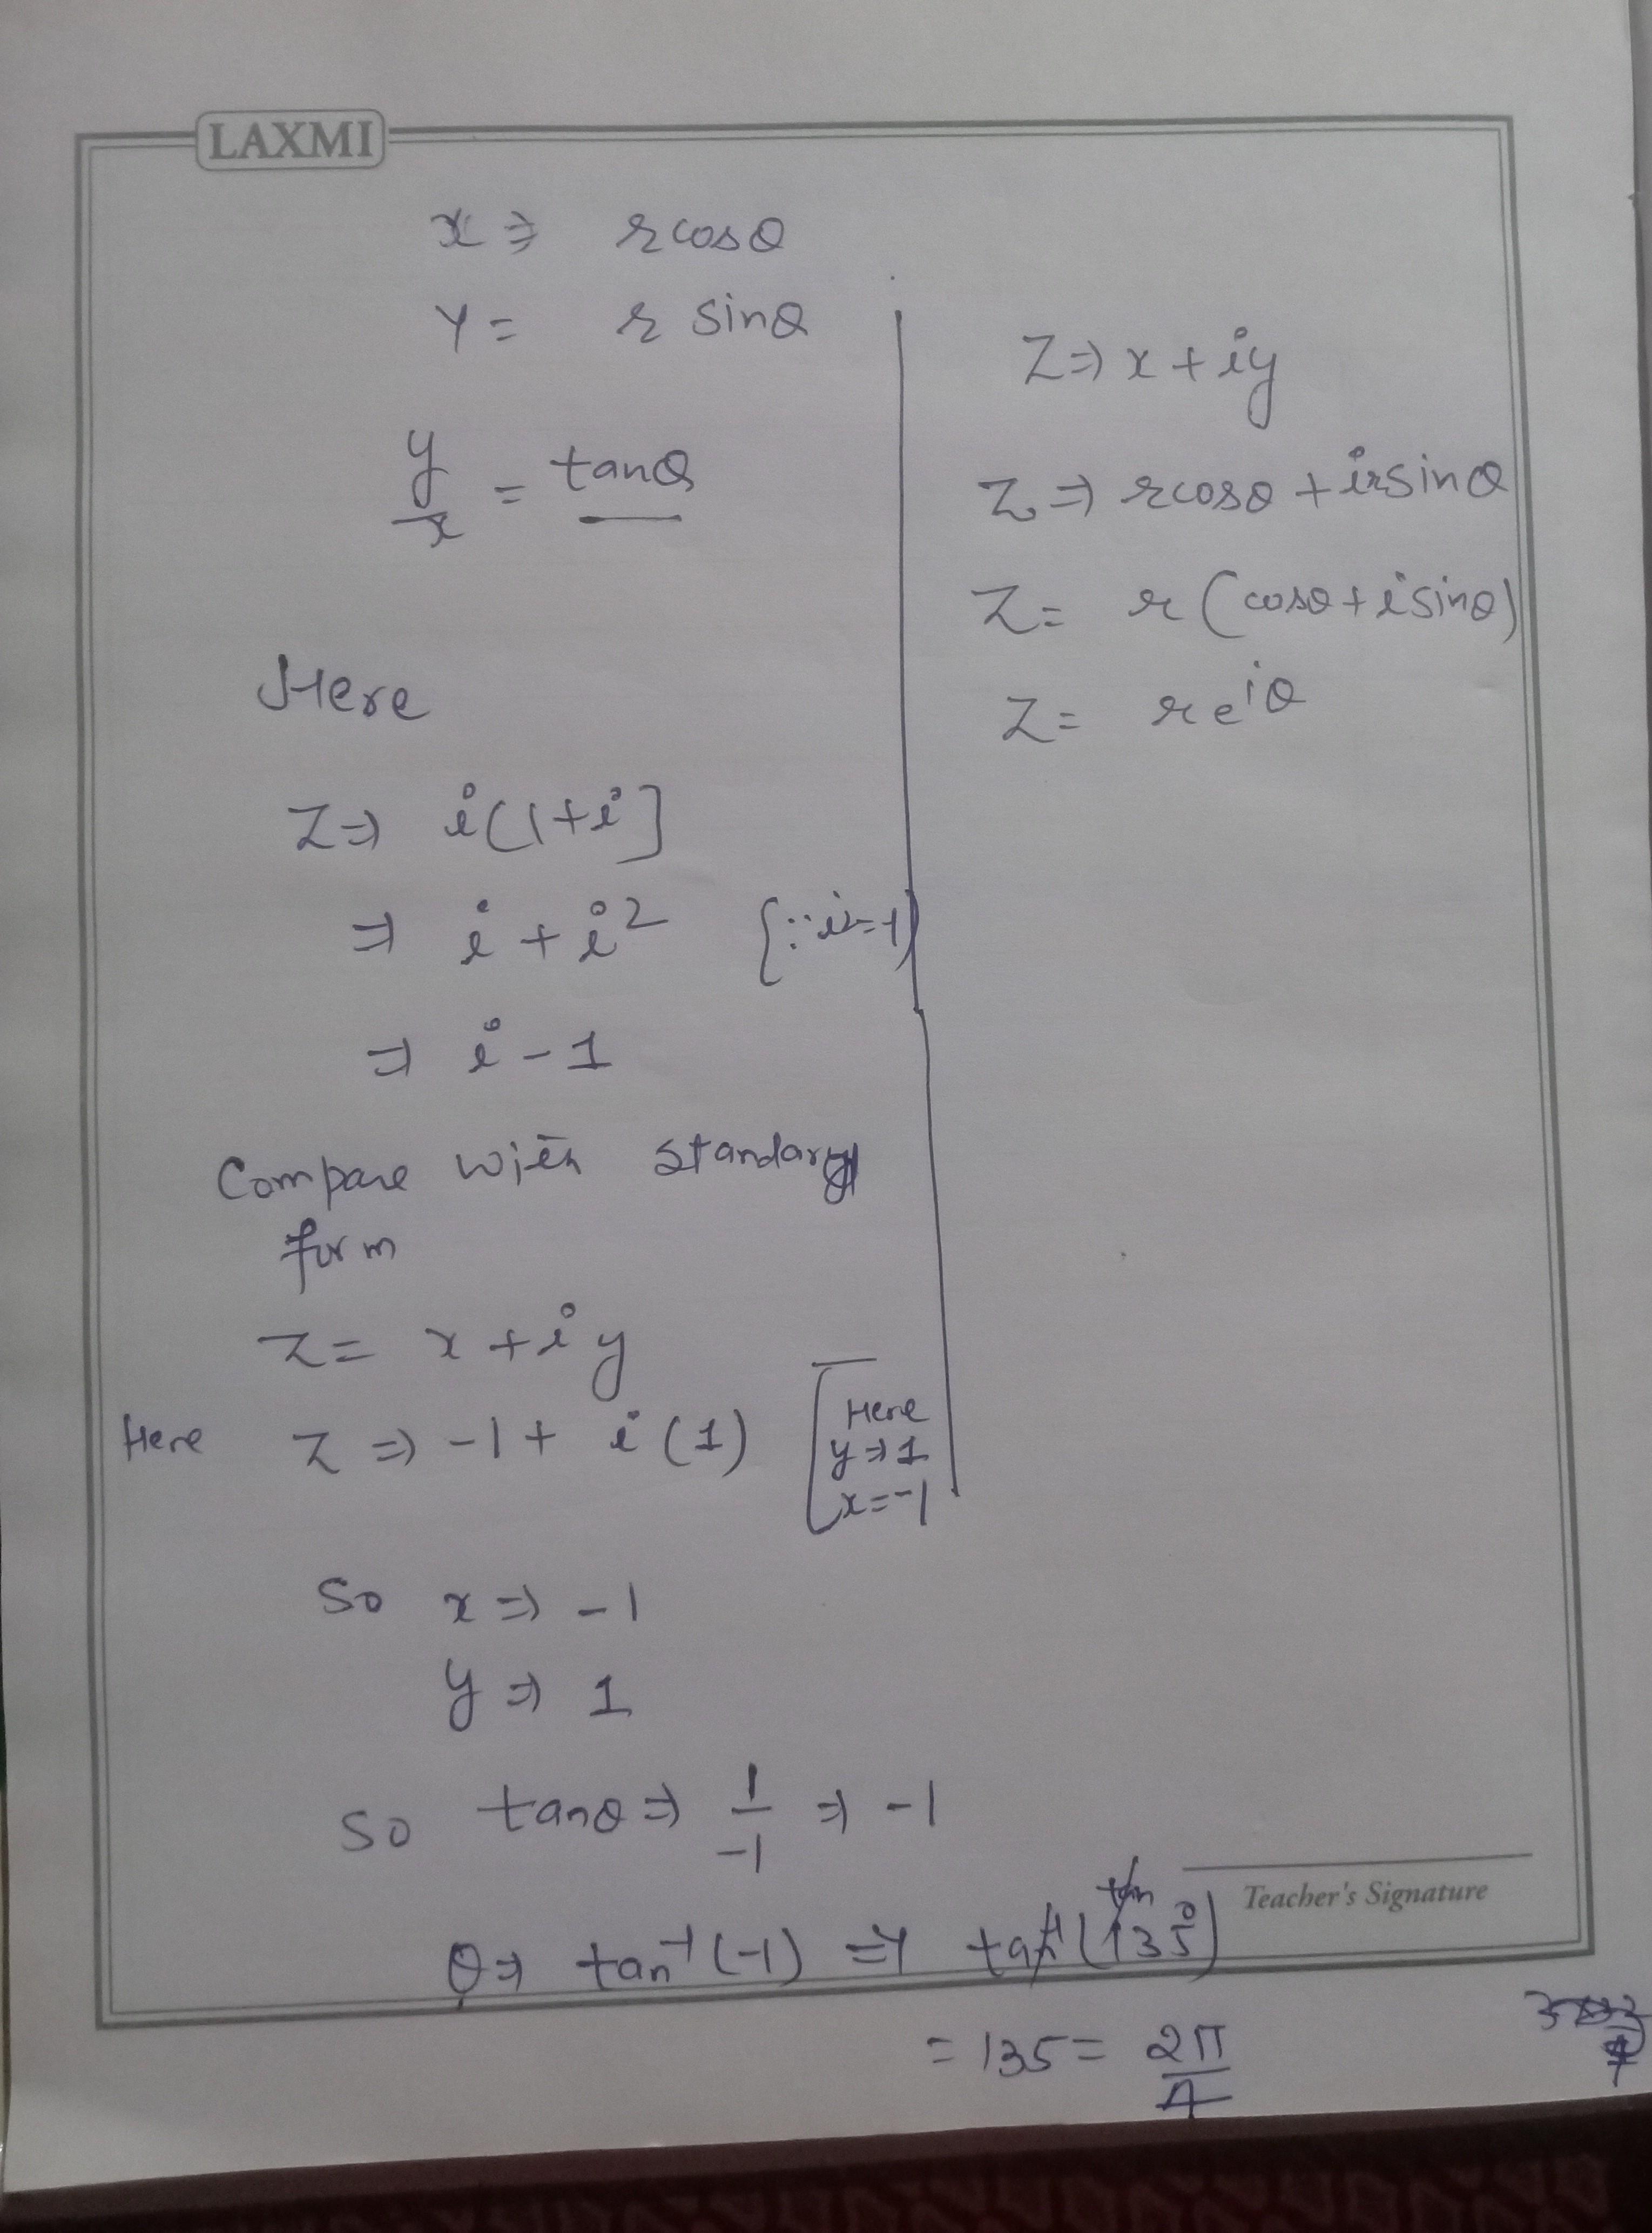 LAXMI
x ⇒ r cosθ
y = r sinθ
y/x = tanθ
Here
Z ⇒ i(1+i]
⇒ i + i² {∵ i²=-1)
⇒ i - 1
Compare with standard
form
Z = x + iy
Here Z ⇒ -1 + i(1)
Here
y ⇒ 1
x = -1
So x ⇒ -1
y ⇒ 1
So tanθ ⇒ 1/-1 ⇒ -1
θ ⇒ tan⁻¹(-1) ⇒ tan⁻¹(tan 135°)
= 135 = 2π/4
Z ⇒ x + iy
Z ⇒ r cosθ + ir sinθ
Z = r(cosθ + i sinθ)
Z = re^iθ
Teacher's Signature